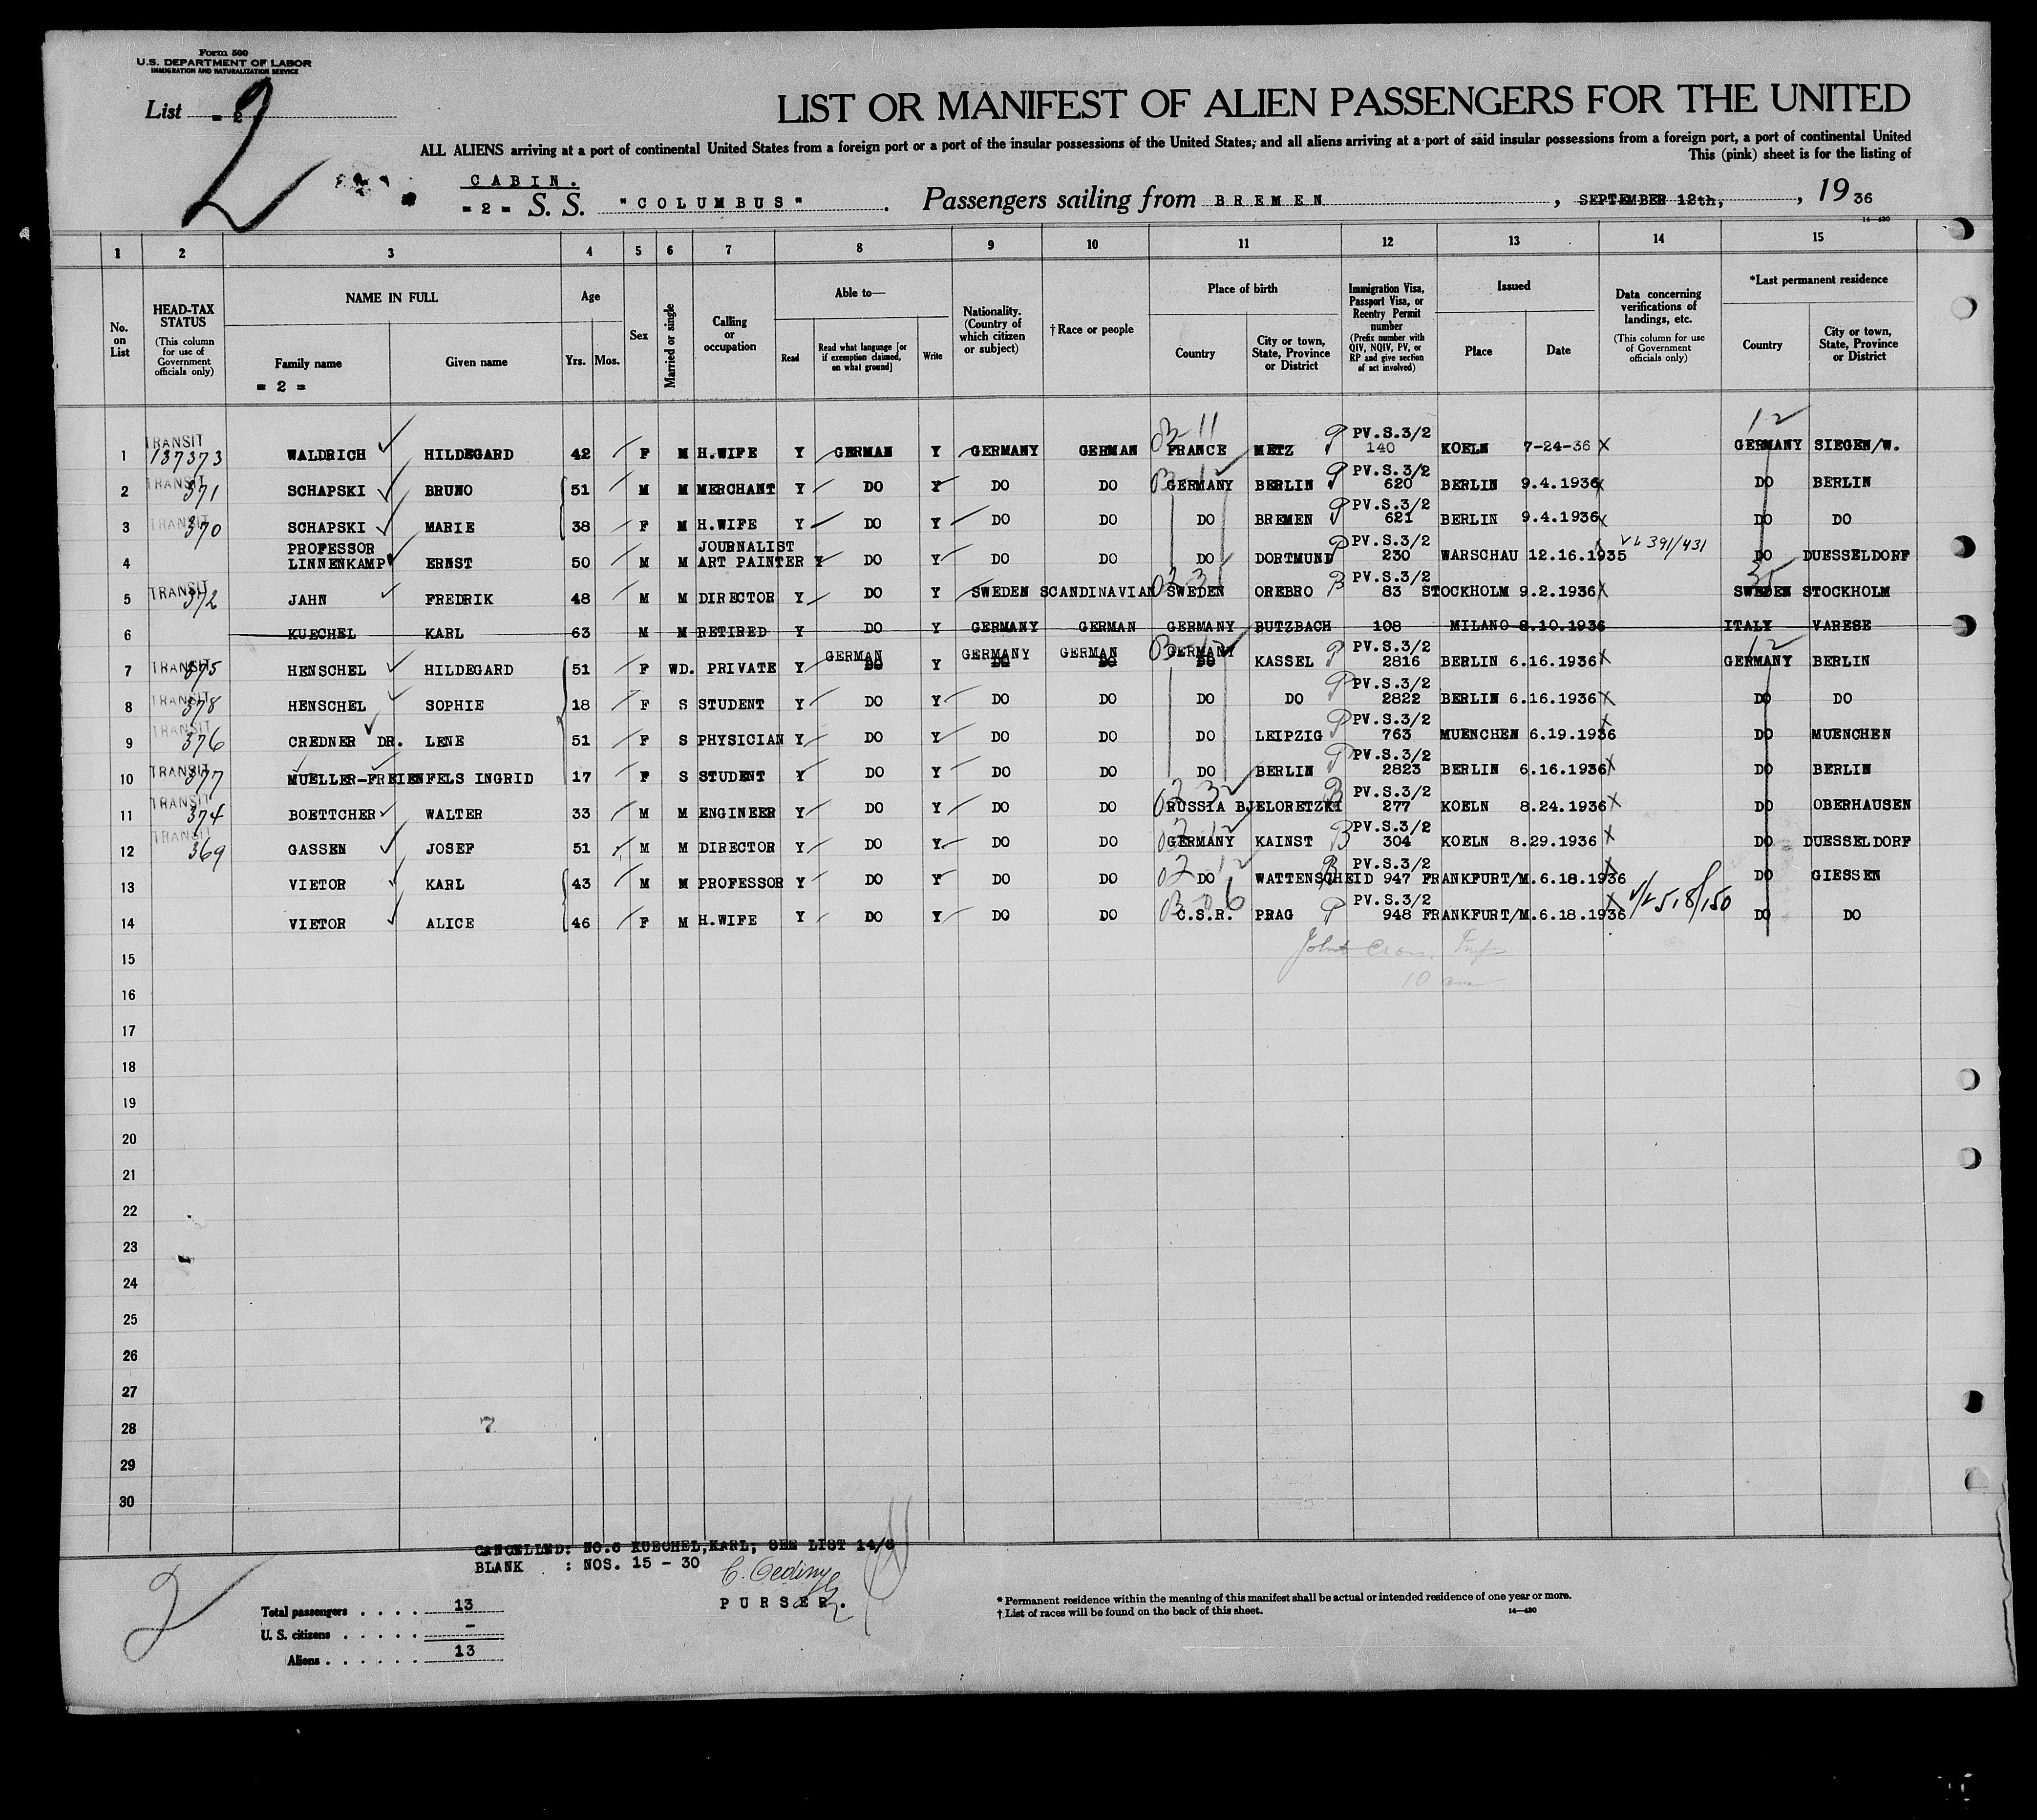 Form 500
U.S. DEPARTMENT OF LABOR
IMMIGRATION AND NATURALIZATION SERVICE
List = 2
2
LIST OR MANIFEST OF ALIEN PASSENGERS FOR THE UNITED
ALL ALIENS arriving at a port of continental United States from a foreign port or a port of the insular possessions of the United States, and all aliens arriving at a port of said insular possessions from a foreign port, a port of continental United
This (pink) sheet is for the listing of
CABIN.
= 2 = S. S. "COLUMBUS". Passengers sailing from BREMEN, SEPTEMBER 12th, 1936
14—430
1 2 3 4 5 6 7 8 9 10 11 12 13 14 15
No. on List
HEAD-TAX STATUS
(This column for use of Government officials only)
NAME IN FULL
Family name
= 2 =
Given name
Age
Yrs. Mos.
Sex
Married or single
Calling or occupation
Able to—
Read
Read what language [or if exemption claimed, on what ground]
Write
Nationality. (Country of which citizen or subject)
†Race or people
Place of birth
Country
City or town, State, Province or District
Immigration Visa, Passport Visa, or Reentry Permit number
(Prefix number with QIV, NQIV, PV, or RP and give section of act involved)
Issued
Place
Date
Data concerning verifications of landings, etc.
(This column for use of Government officials only)
*Last permanent residence
Country
City or town, State, Province or District
1 TRANSIT 137373 WALDRICH HILDEGARD 42 F M H.WIFE Y GERMAN Y GERMANY GERMAN 03 11 FRANCE METZ P PV.S.3/2 140 KOELN 7-24-36 X 12 GERMANY SIEGEN/W.
2 TRANSIT 371 SCHAPSKI BRUNO 51 M M MERCHANT Y DO Y DO DO 03 12 GERMANY BERLIN P PV.S.3/2 620 BERLIN 9.4.1936 X DO BERLIN
3 TRANSIT 370 SCHAPSKI MARIE 38 F M H.WIFE Y DO Y DO DO DO BREMEN P PV.S.3/2 621 BERLIN 9.4.1936 X DO DO
4 PROFESSOR LINNENKAMP ERNST 50 M M JOURNALIST ART PAINTER Y DO Y DO DO DO DORTMUND P PV.S.3/2 230 WARSCHAU 12.16.1935 391/431 DO DUESSELDORF
5 TRANSIT 372 JAHN FREDRIK 48 M M DIRECTOR Y DO Y SWEDEN SCANDINAVIAN 02 35 SWEDEN OREBRO B PV.S.3/2 83 STOCKHOLM 9.2.1936 X 35 SWEDEN STOCKHOLM
6 KUECHEL KARL 63 M M RETIRED Y DO Y GERMANY GERMAN GERMANY BUTZBACH 108 MILANO 8.10.1936 ITALY VARESE
7 TRANSIT 375 HENSCHEL HILDEGARD 51 F WD. PRIVATE Y GERMAN DO Y GERMANY DO GERMAN DO 03 12 GERMANY DO KASSEL P PV.S.3/2 2816 BERLIN 6.16.1936 X 12 GERMANY BERLIN
8 TRANSIT 378 HENSCHEL SOPHIE 18 F S STUDENT Y DO Y DO DO DO DO P PV.S.3/2 2822 BERLIN 6.16.1936 X DO DO
9 TRANSIT 376 CREDNER DR. LENE 51 F S PHYSICIAN Y DO Y DO DO DO LEIPZIG P PV.S.3/2 763 MUENCHEN 6.19.1936 X DO MUENCHEN
10 TRANSIT 377 MUELLER-FREIENFELS INGRID 17 F S STUDENT Y DO Y DO DO DO BERLIN P PV.S.3/2 2823 BERLIN 6.16.1936 X DO BERLIN
11 TRANSIT 374 BOETTCHER WALTER 33 M M ENGINEER Y DO Y DO DO 02 32 RUSSIA BJELORETZKI B PV.S.3/2 277 KOELN 8.24.1936 X DO OBERHAUSEN
12 TRANSIT 369 GASSEN JOSEF 51 M M DIRECTOR Y DO Y DO DO 02 12 GERMANY KAINST B PV.S.3/2 304 KOELN 8.29.1936 X DO DUESSELDORF
13 VIETOR KARL 43 M M PROFESSOR Y DO Y DO DO 02 12 DO WATTENSCHEID B PV.S.3/2 947 FRANKFURT/M. 6.18.1936 X DO GIESSEN
14 VIETOR ALICE 46 F M H.WIFE Y DO Y DO DO 03 06 C.S.R. PRAG P PV.S.3/2 948 FRANKFURT/M. 6.18.1936 X 518/150 DO DO
15
10 am
16
17
18
19
20
21
22
23
24
25
26
27
28 7
29
30
CANCELLED: NO.6 KUECHEL,KARL; SEE LIST 14/8
BLANK : NOS. 15 - 30
PURSER.
2
Total passengers . . . . 13
U. S. citizens . . . . . –
Aliens . . . . . . 13
* Permanent residence within the meaning of this manifest shall be actual or intended residence of one year or more.
† List of races will be found on the back of this sheet.
14—430